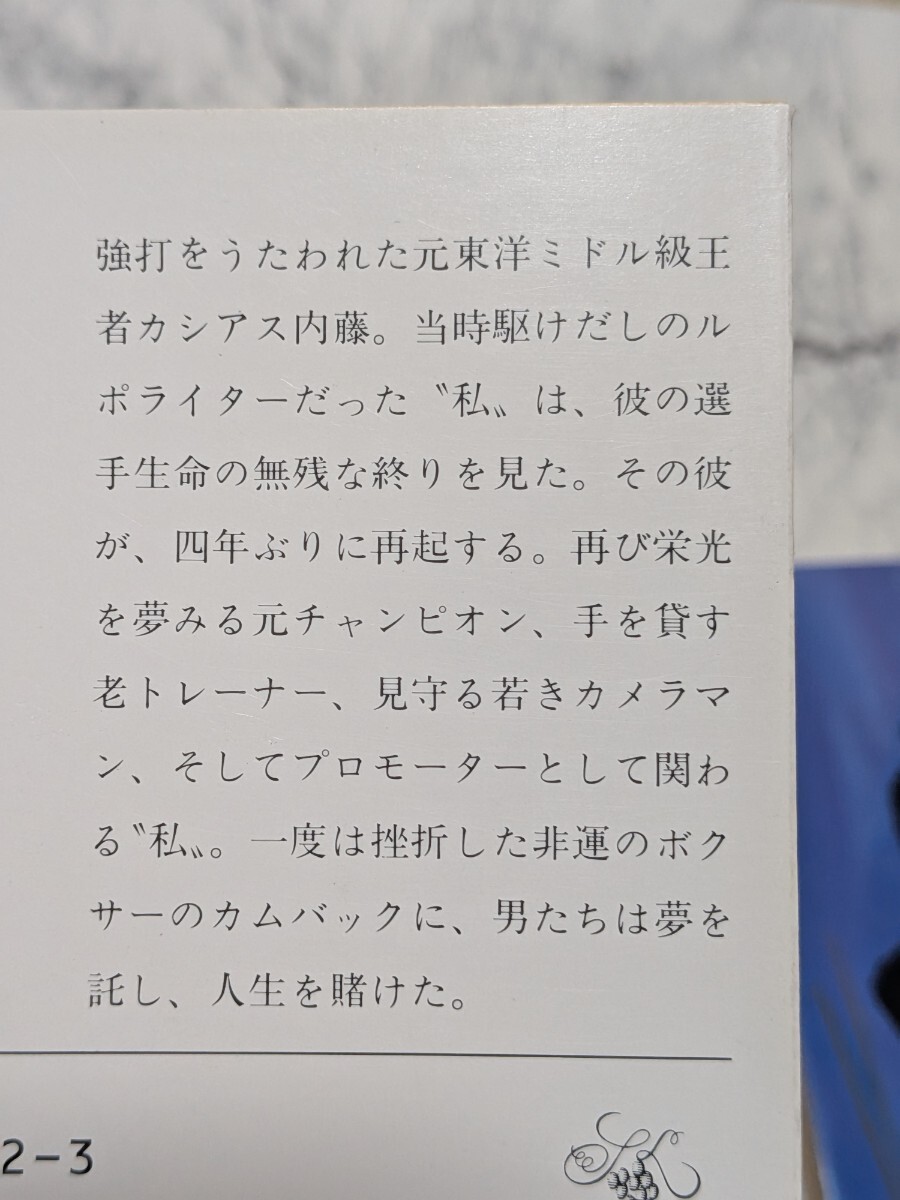 強打をうたわれた元東洋ミドル級王
者カシアス内藤。当時駆けだしのル
ポライターだった〝私〟は、彼の選
手生命の無残な終りを見た。その彼
が、四年ぶりに再起する。再び栄光
を夢みる元チャンピオン、手を貸す
老トレーナー、見守る若きカメラマ
ン、そしてプロモーターとして関わ
る〝私〟。一度は挫折した非運のボク
サーのカムバックに、男たちは夢を
託し、人生を賭けた。
2-3
SK